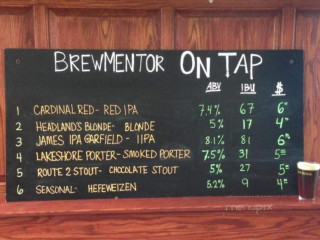 BREWMENTOR ON TAP
ABV IBU $
1 CARDINAL RED- RED IPA 7.4% 67 6
2 HEADLAND'S BLONDE- BLONDE 5% 17 4
3 JAMES IPA GARFIELD- IIPA 8.1% 81 6
4 LAKESHORE PORTER- SMOKED PORTER 7.5% 31 5
5 ROUTE 2 STOUT- CHOCOLATE STOUT 5% 27 5
6 SEASONAL- HEFEWEIZEN 5.2% 9 4